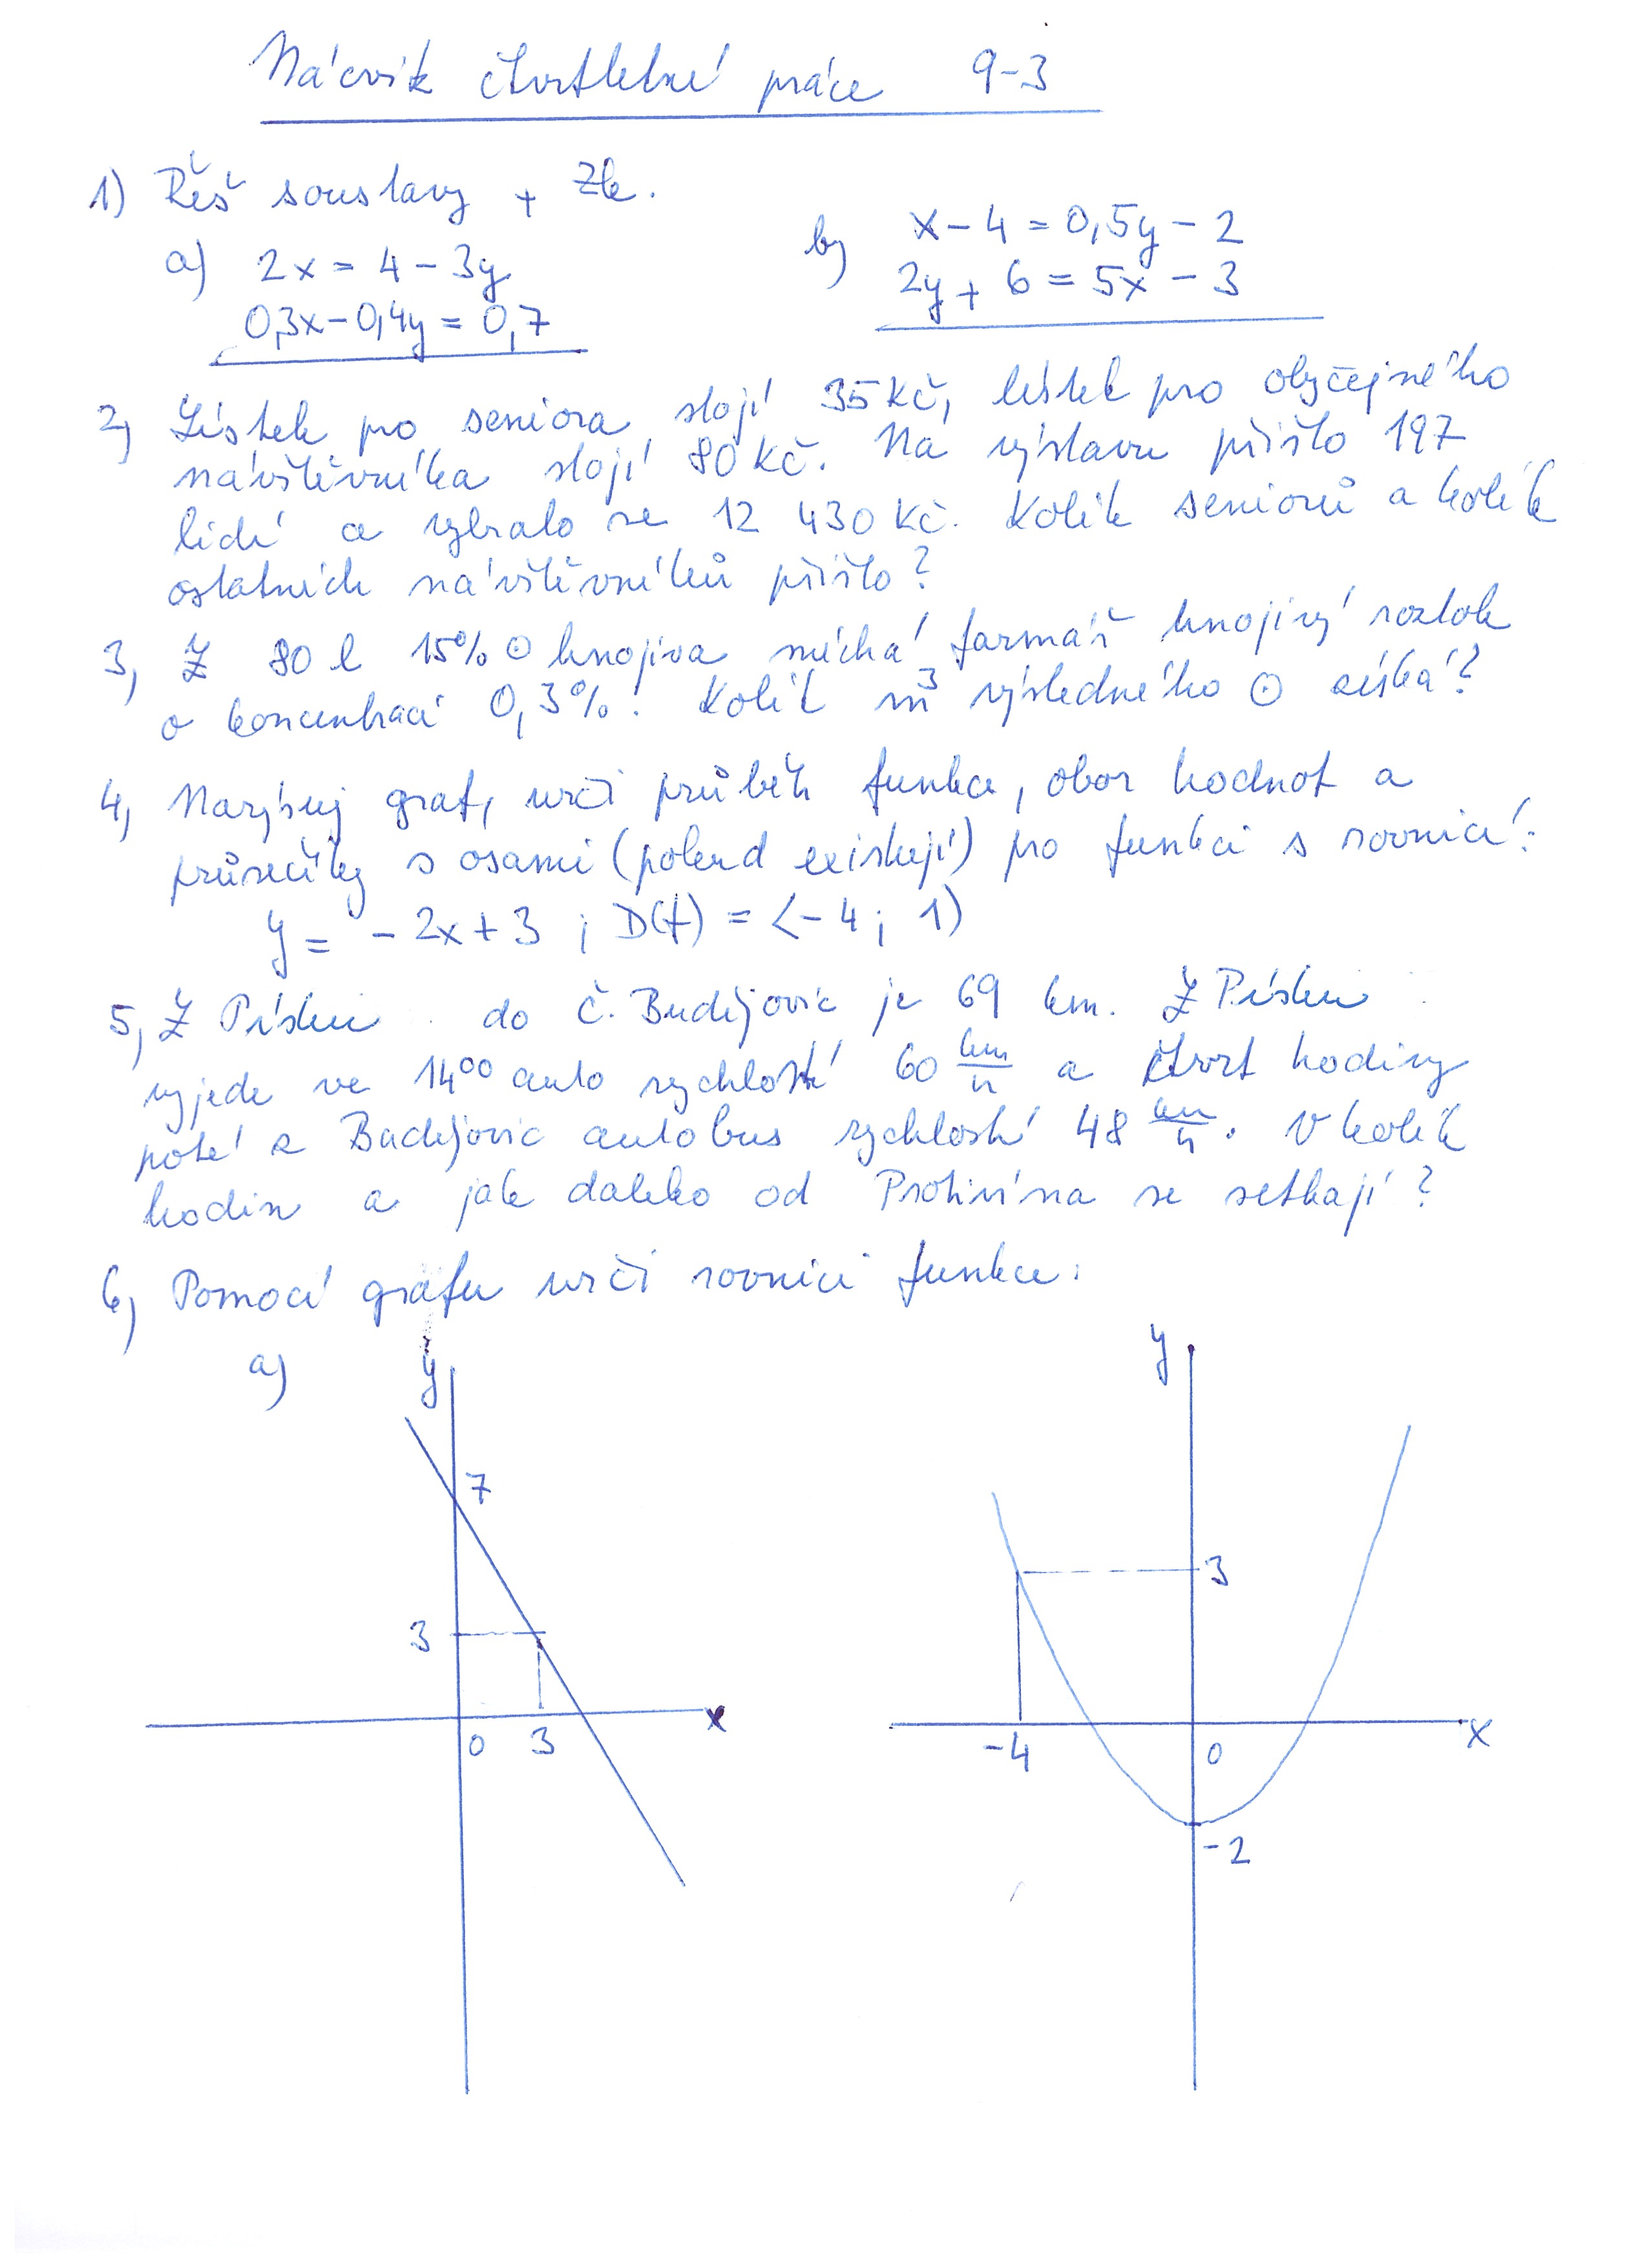 Nácvik čtvrtletní práce 9-3
1) Řěš soustavy + Zk.
a) 2x = 4 - 3y
0,3x - 0,4y = 0,7
b) x - 4 = 0,5y - 2
2y + 6 = 5x - 3
2) Lístek pro seniora stojí 35 Kč, lístek pro obyčejného
návštěvníka stojí 80 Kč. Na výstavu přišlo 197
lidí a vybralo se 12 430 Kč. Kolik seniorů a kolik
ostatních návštěvníků přišlo?
3) Z 80 l 15% ⊙ hnojiva míchá farmář hnojivý roztok
o koncentraci 0,3%! Kolik m³ výsledného ⊙ získá?
4) Narýsuj graf, urči průběh funkce, obor hodnot a
průsečíky s osami (pokud existují) pro funkci s rovnicí:
y = - 2x + 3 ; D(f) = <- 4 ; 1)
5) Z Písku do Č. Budějovic je 69 km. Z Písku
vyjede ve 14⁰⁰ auto rychlostí 60 km/h a čtvrt hodiny
poté z Budějovic autobus rychlostí 48 km/h. V kolik
hodin a jak daleko od Protivína se setkají?
6) Pomocí grafu urči rovnici funkce:
a)
y
7
3
0 3
x
y
3
-4 0
x
-2